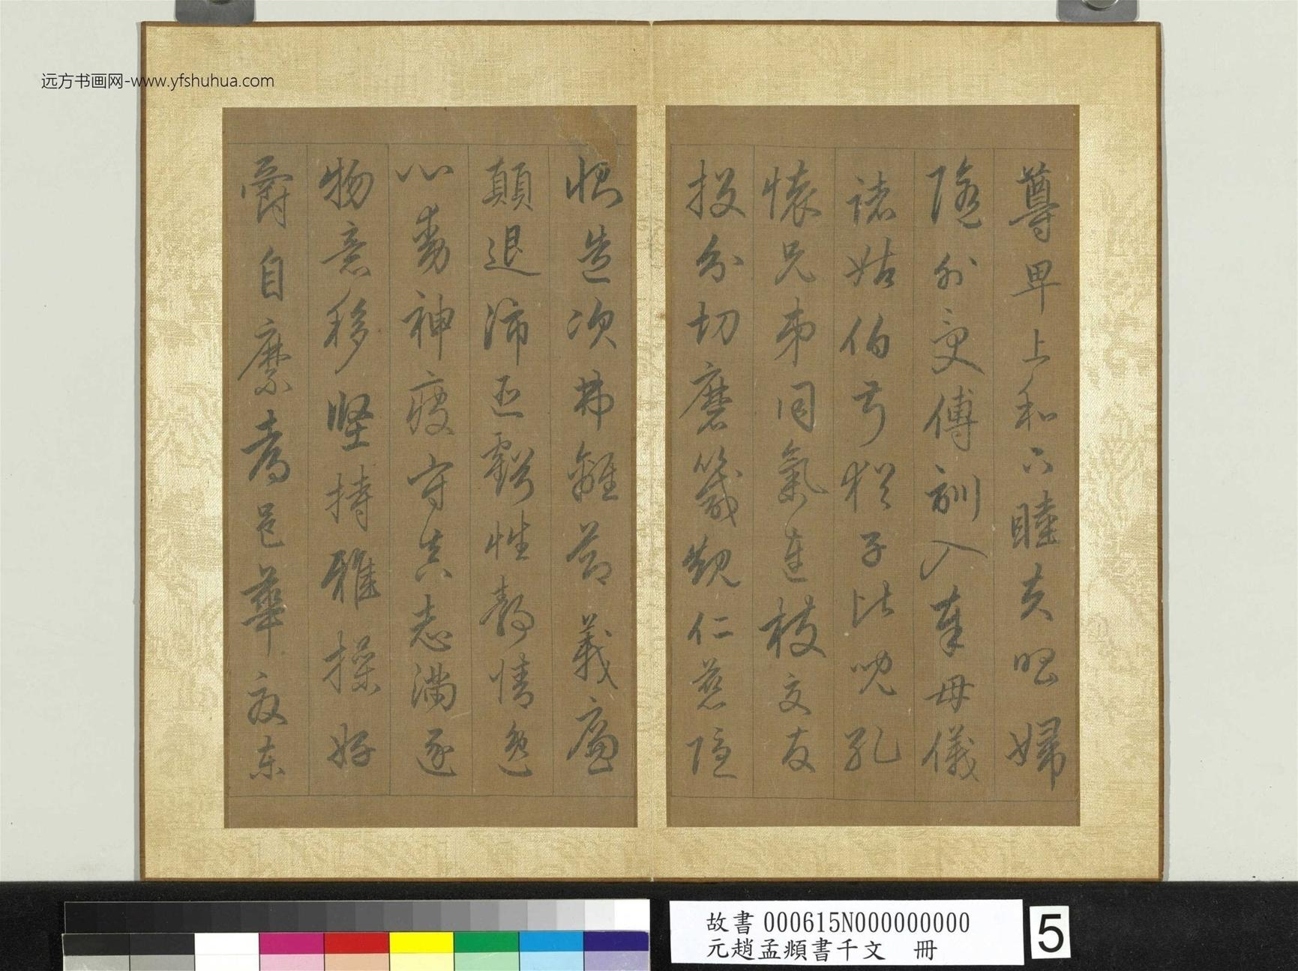 远方书画网-www.yfshuhua.com
尊卑上和下睦夫唱婦
隨外受傅訓入奉母儀
諸姑伯叔猶子比兒孔
懷兄弟同氣連枝交友
投分切磨箴規仁慈隱
惻造次弗離節義廉
顛退沛匪虧性靜情逸
心動神疲守真志滿逐
物意移堅持雅操好
爵自縻都邑華夏東
故書 000615N000000000
元趙孟頫書千文 冊
5